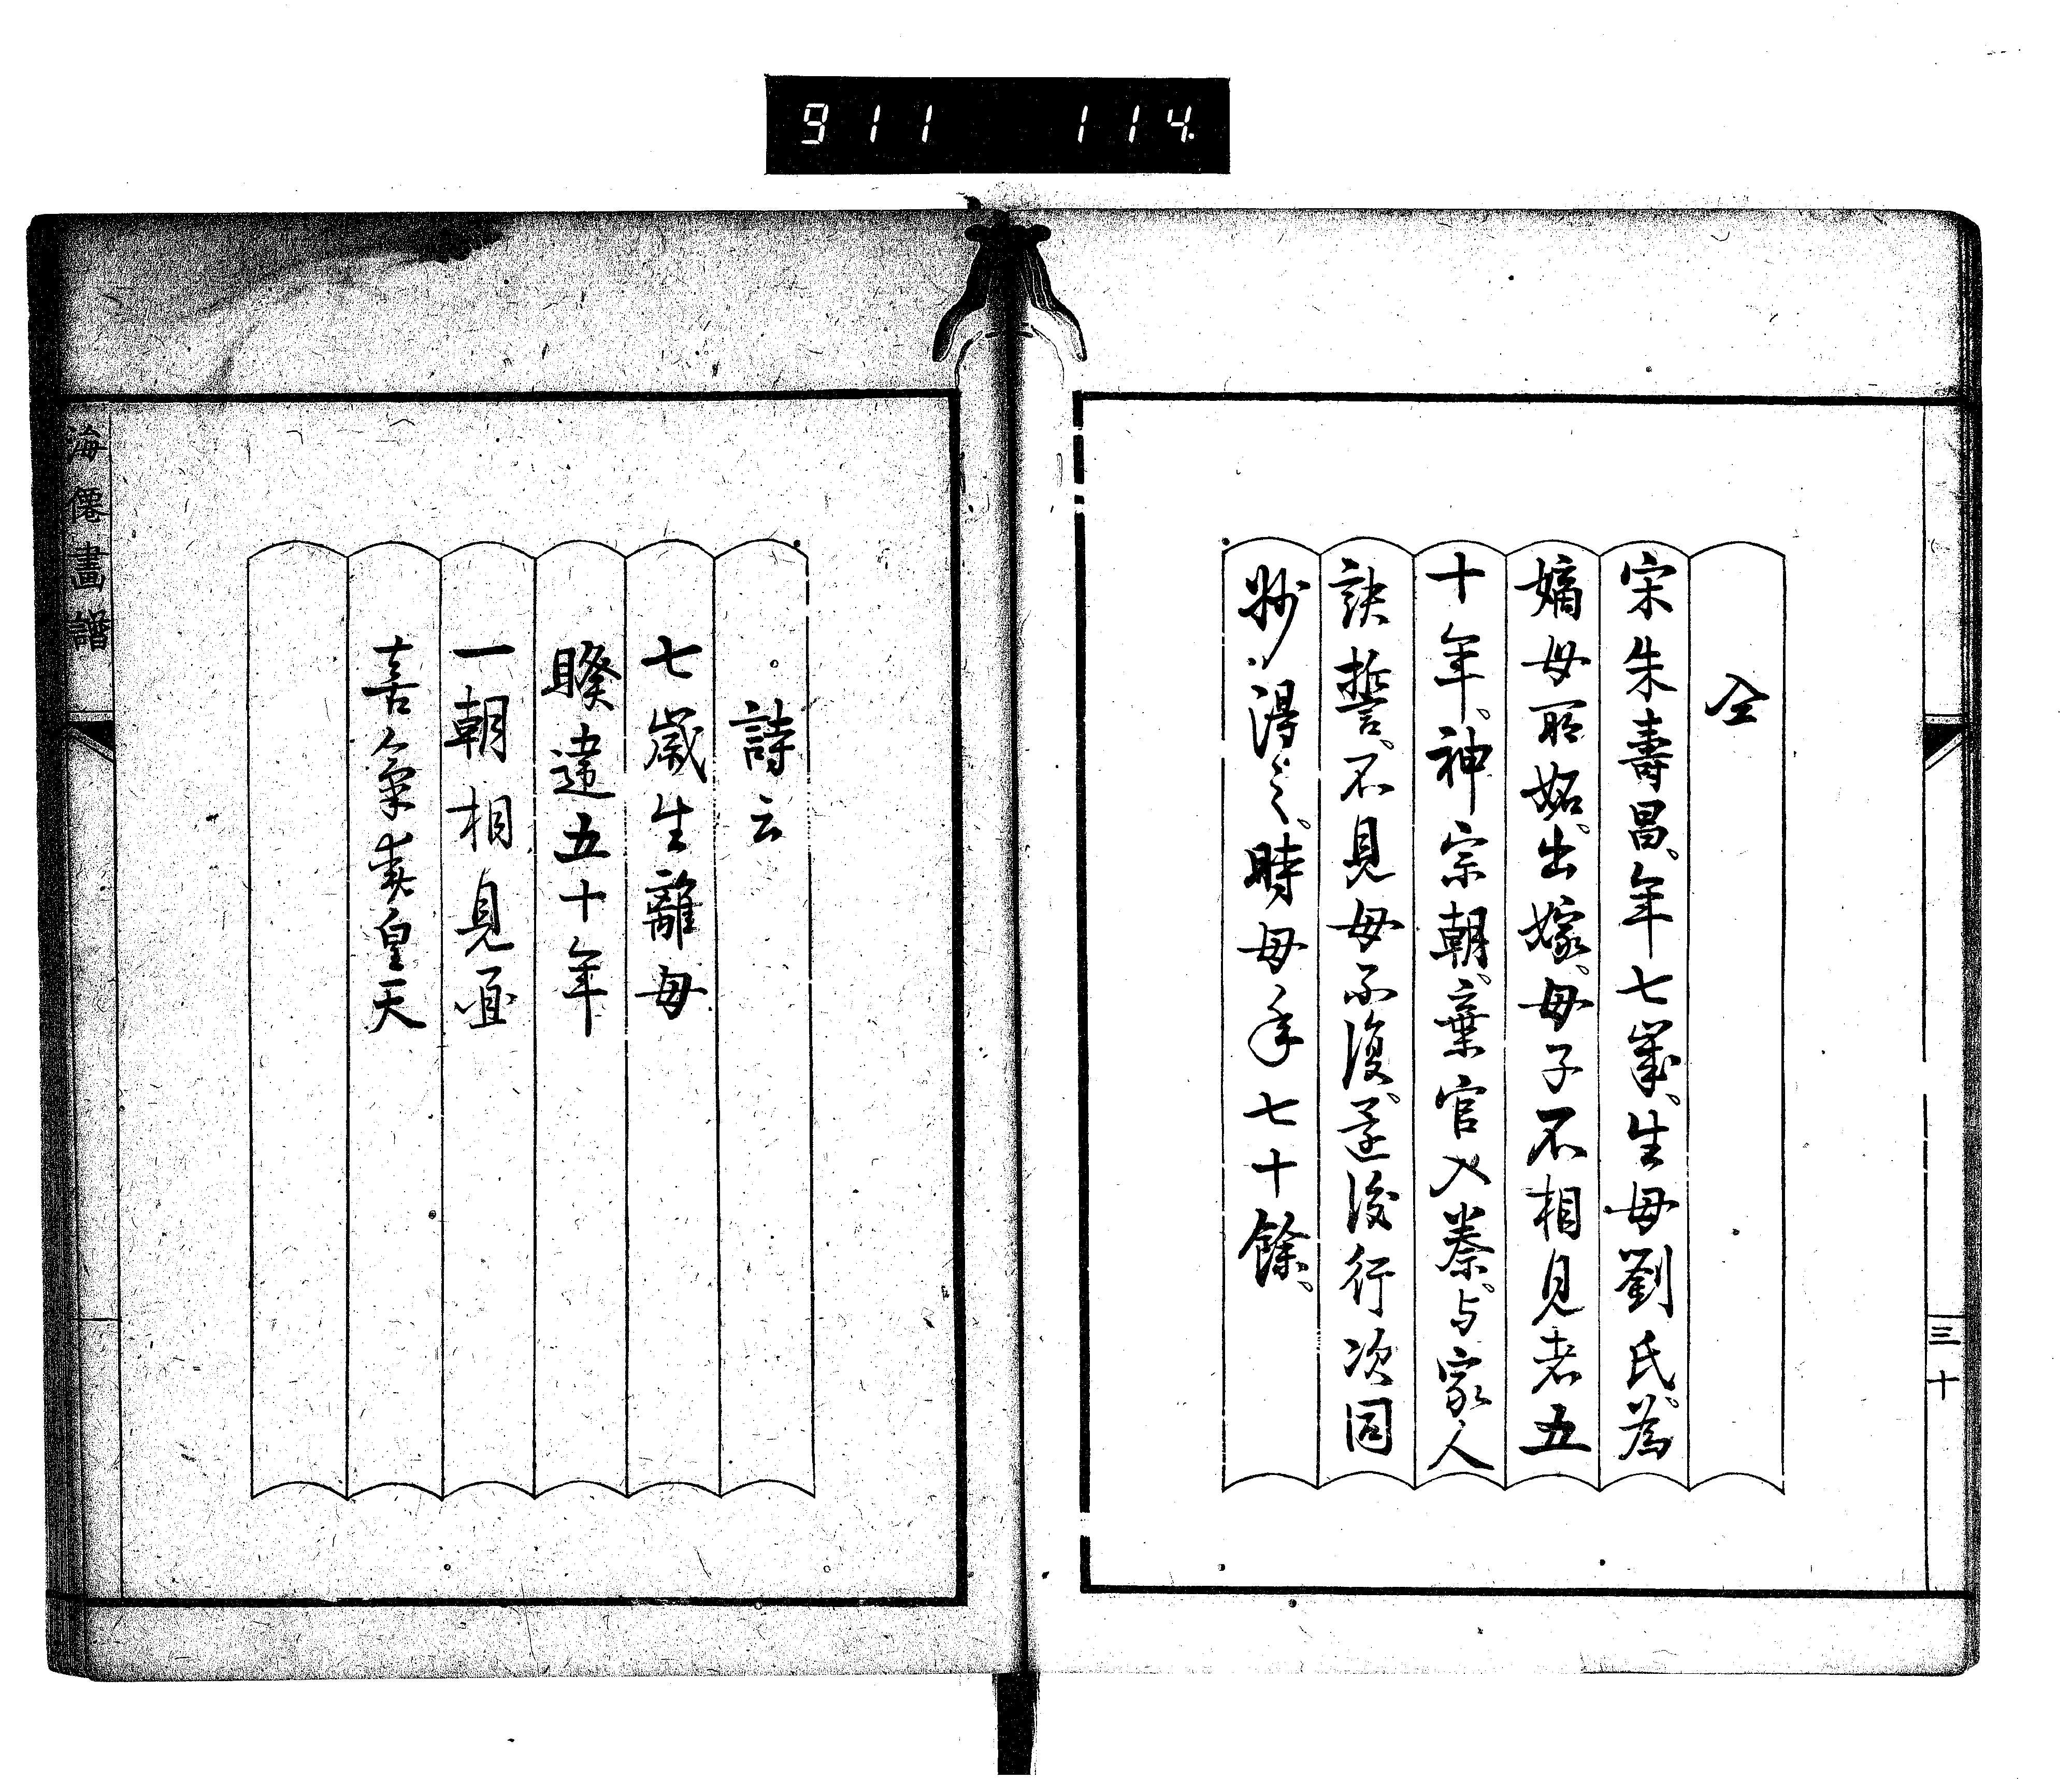 911 114
三十
仝
宋朱壽昌。年七歲。生母劉氏。為
嫡母所妬。出嫁。母子不相見者五
十年。神宗朝。棄官入秦。与家人
訣誓。不見母不復還。後行次同
州。得之。時母年七十餘。
詩云
七歲生離母
睽違五十年
一朝相見面
喜氣動皇天
海僊畫譜